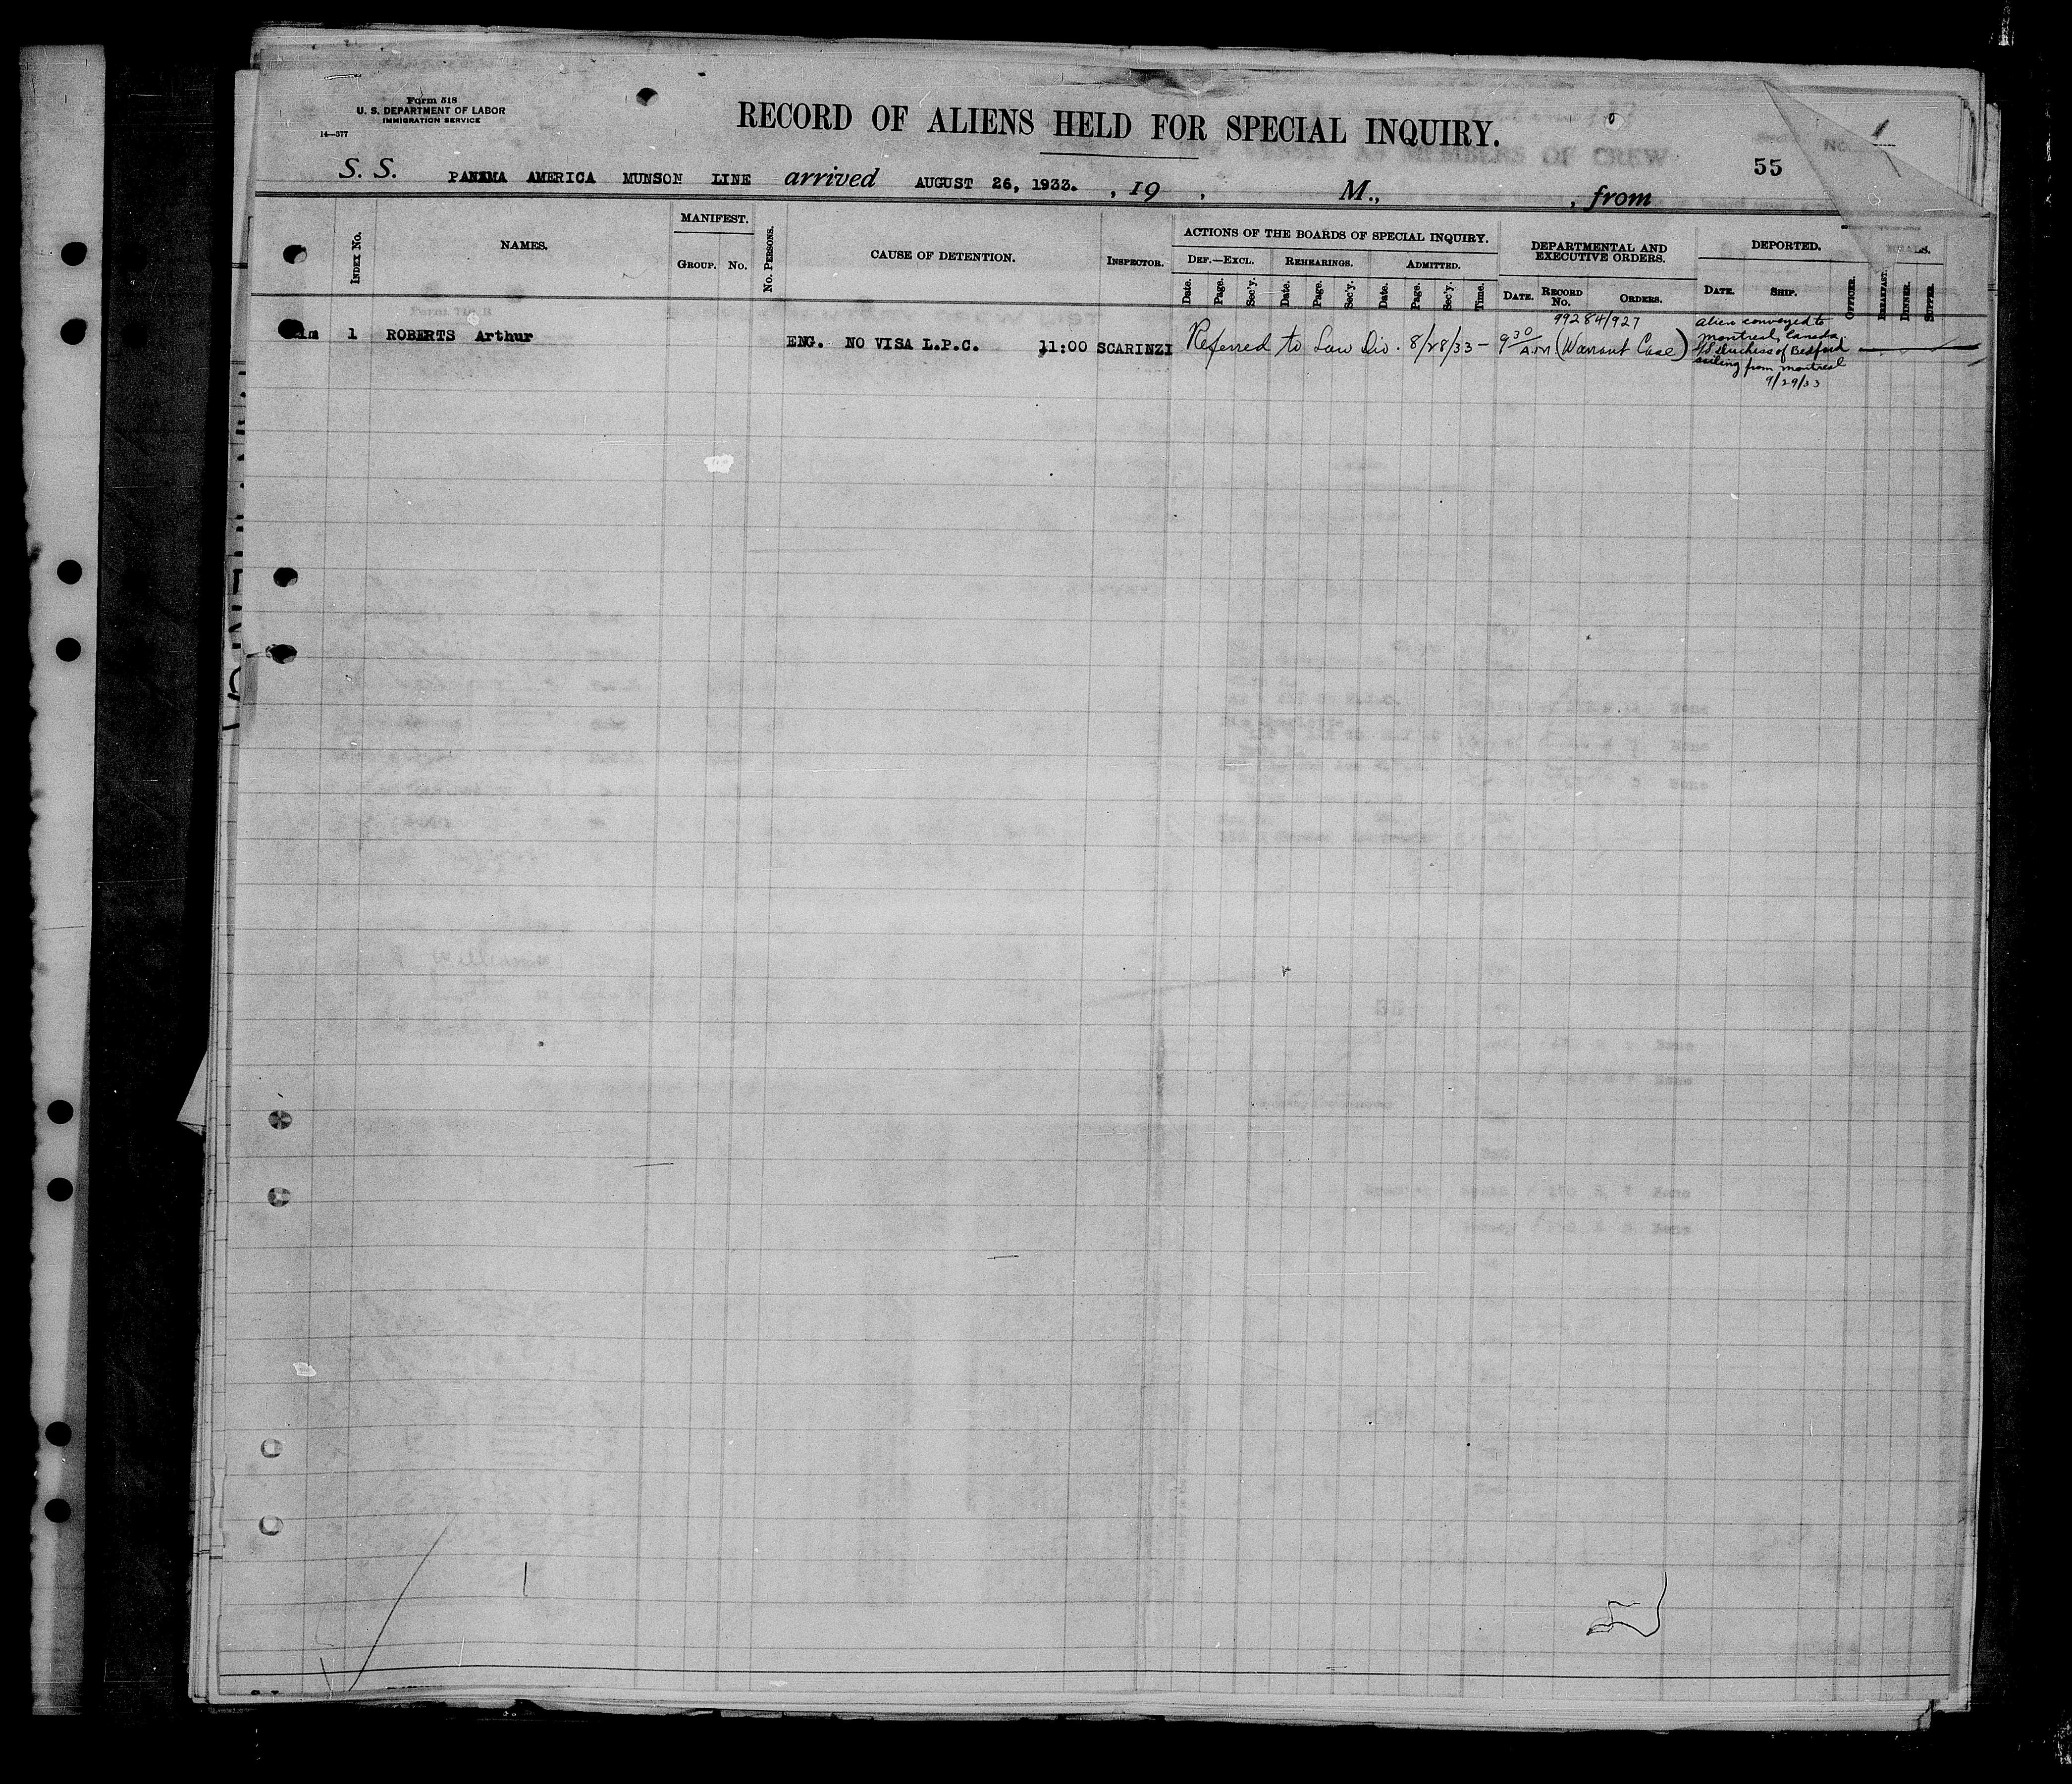 Form 518
U. S. DEPARTMENT OF LABOR
IMMIGRATION SERVICE
14—577
RECORD OF ALIENS HELD FOR SPECIAL INQUIRY.
MEMBERS OF CREW
55
NO.
S. S. PANAMA AMERICA MUNSON LINE arrived AUGUST 26, 1933. , 19 , M., , from
INDEX No.
NAMES.
MANIFEST.
GROUP. No.
No. PERSONS.
CAUSE OF DETENTION.
INSPECTOR.
ACTIONS OF THE BOARDS OF SPECIAL INQUIRY.
DEF.—EXCL. REHEARINGS. ADMITTED.
Date. Page. Sec'y. Date. Page. Sec'y. Date. Page. Sec'y. Time.
DEPARTMENTAL AND
EXECUTIVE ORDERS.
DATE. RECORD No. ORDERS.
DEPORTED.
DATE. SHIP. OFFICER.
BREAKFAST. DINNER. SUPPER.
1m 1 ROBERTS Arthur ENG. NO VISA L.P.C. 11:00 SCARINZI Referred to Law Div. 8/28/33 — 9 30/A.M (Warrant Case)
99284/927
alien conveyed to
Montreal, Canada.
S/S Duchess of Bedford
sailing from Montreal
9/29/33